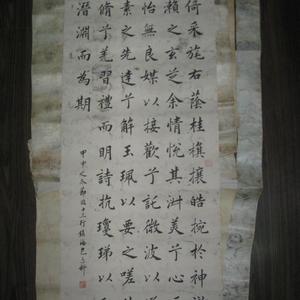 倚采旄右蔭桂旗攘皓腕於神滸
瀨之玄芝余情悅其淑美兮心
怡無良媒以接歡兮託微波以
素之先達兮解玉珮以要之嗟
脩兮羌習禮而明詩抗瓊珶以
潛淵而為期
甲申之冬